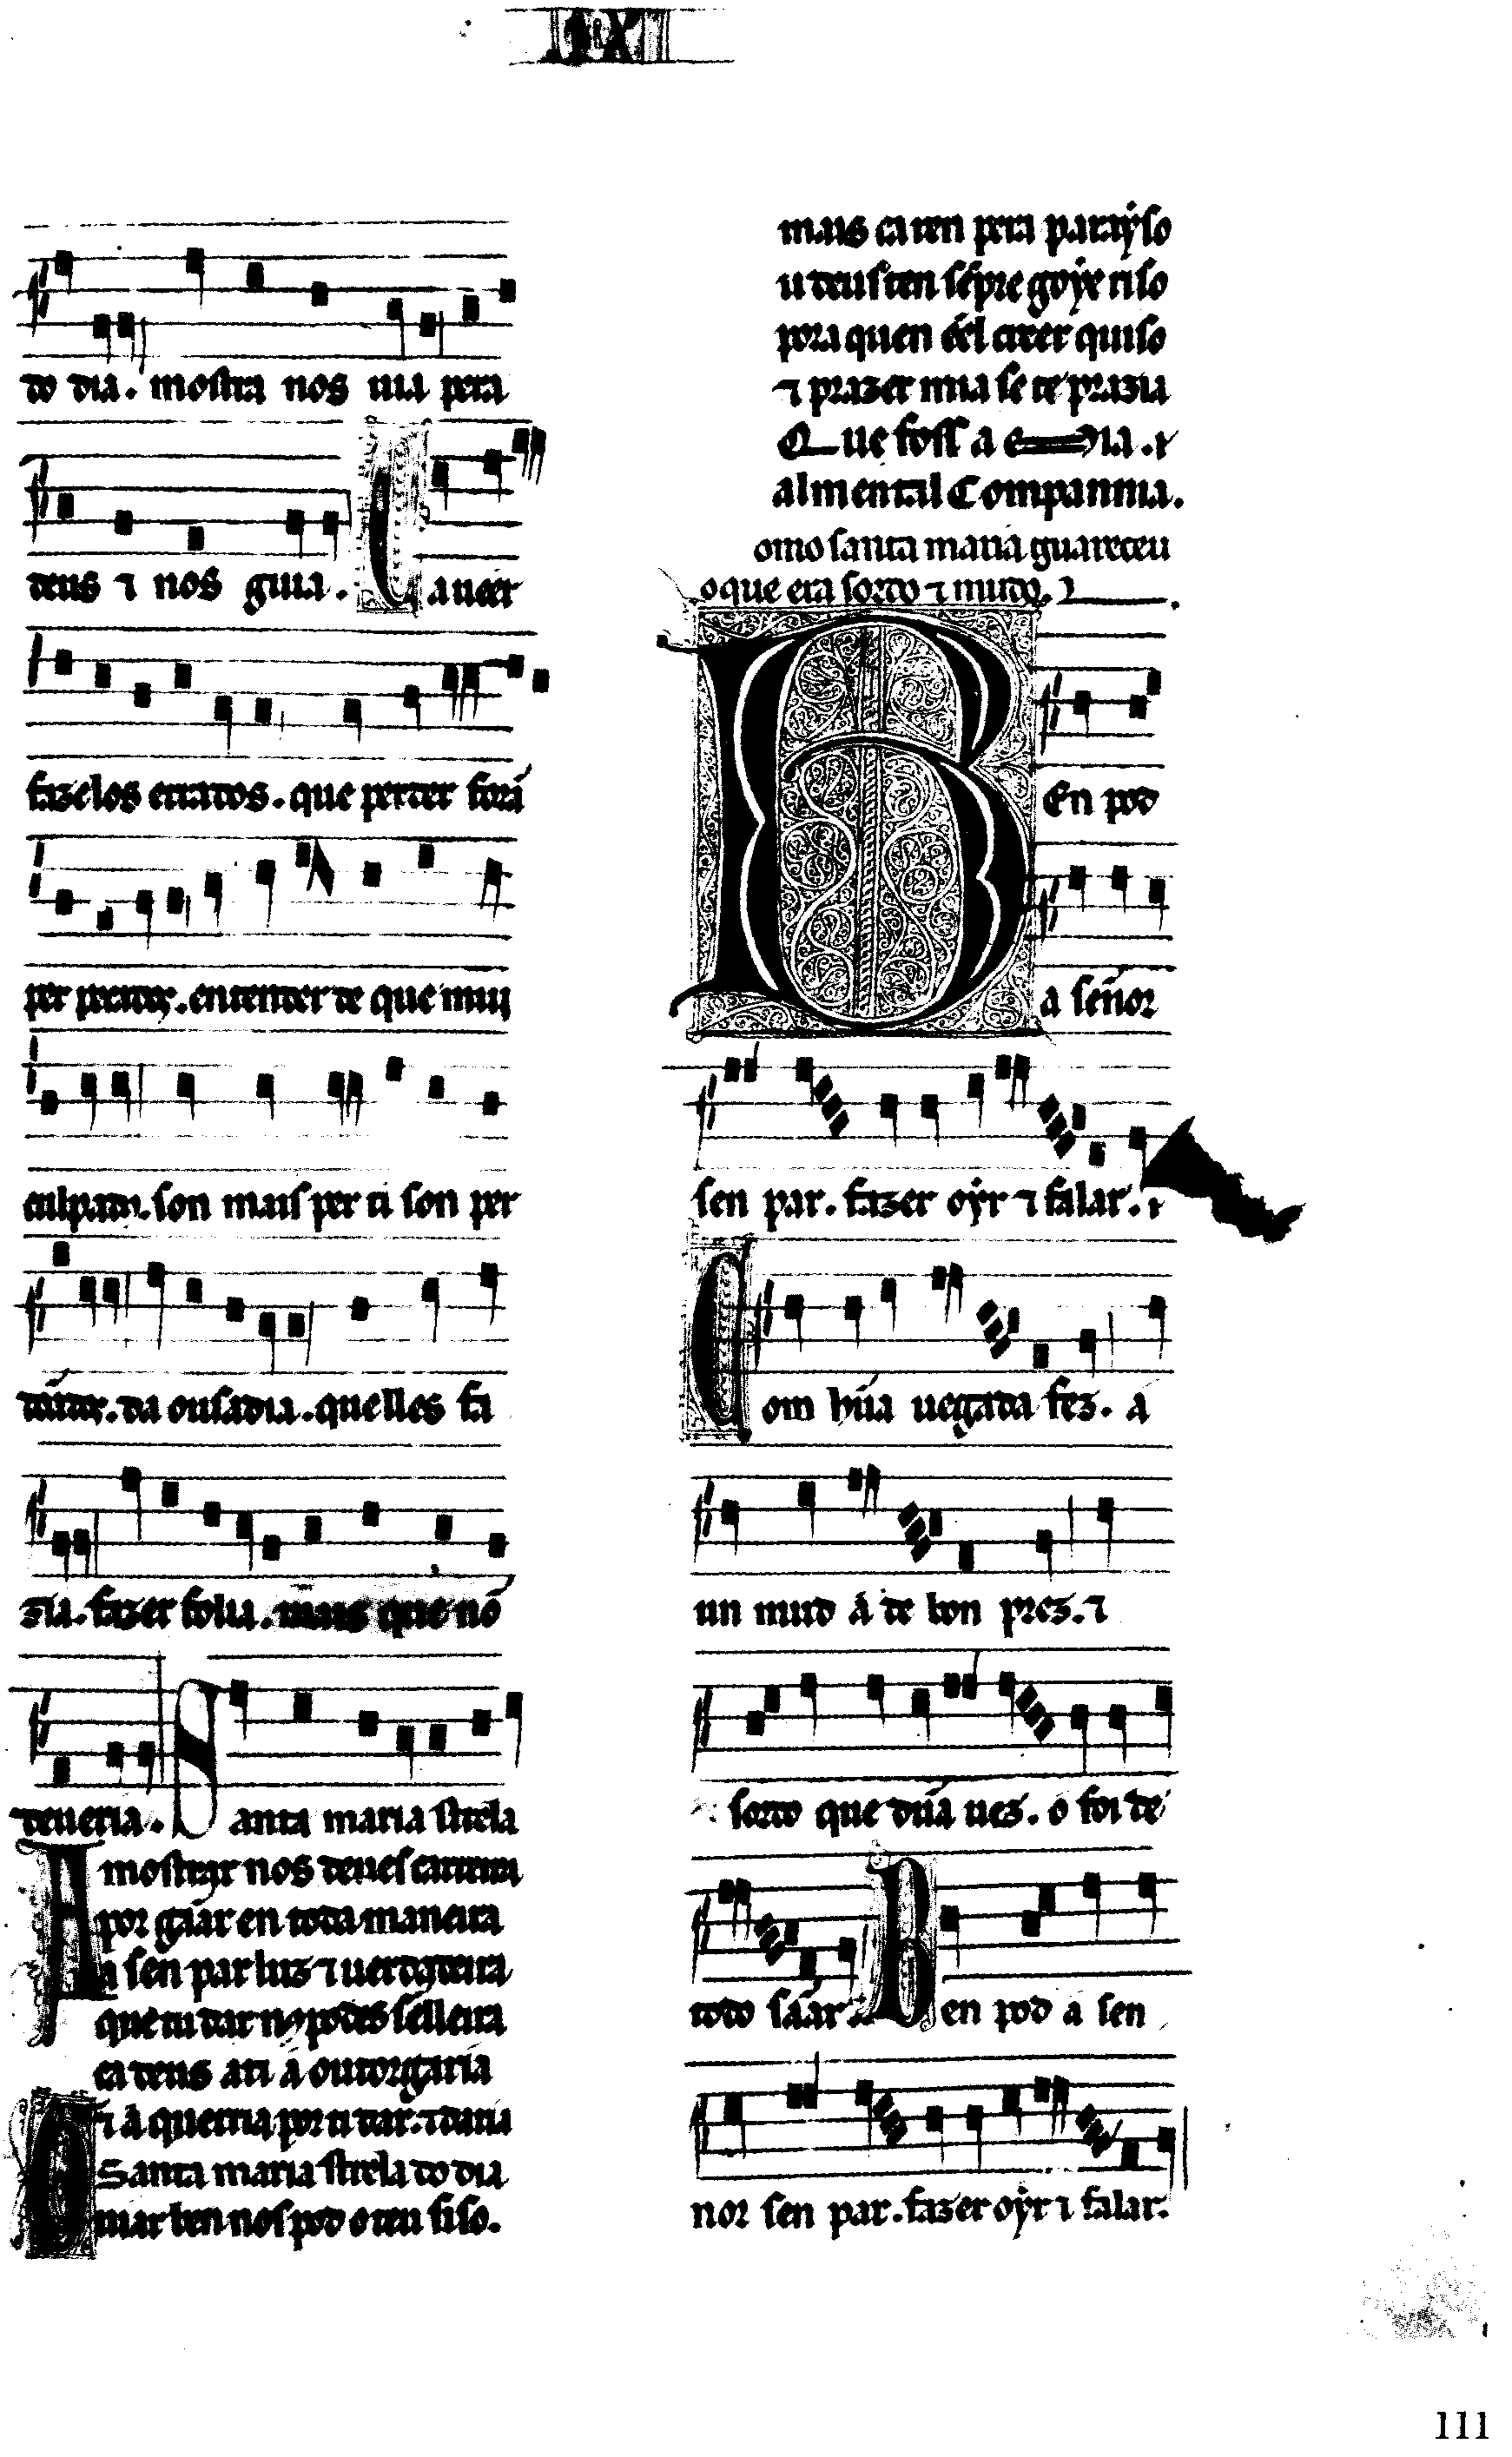 LXI
do dia. mostra nos uia pera
deus ⁊ nos guia. Ca ueer
fazelos errados. que perder forã
per pecados. entender de que mui
culpados. son mais per ti son per
dõados. da ousadia. que lles fa
zia. fazer folia. mais que nõ
deueria. Santa maria strela
Amostrar nos deues carreira
por gãar en toda maneira
a sen par luz ⁊ uerdadeira
que tu dar nos podes senlleira
ca deus a ti a outorgaria
⁊ a querria por ti dar. ⁊ daria
Santa maria strela do dia
Guiar ben nos pod o teu siso.
mais ca ren pera parayso
u deus ten sẽpre goy' e riso
pora quen en el creer quiso
⁊ prazer mia se te prazia
Que foss a mia .
alm en tal Compannia.
omo santa maria guareceu
o que era sordo ⁊ mudo.
BEn pod
a señor
sen par. fazer oyr ⁊ falar. ⁊
Com hũa uegada fez. a
un mud a de bon prez. ⁊
sordo que dũa uez. o foi de
todo sãar. Ben pod a sen
nor sen par. fazer oyr ⁊ falar.
111